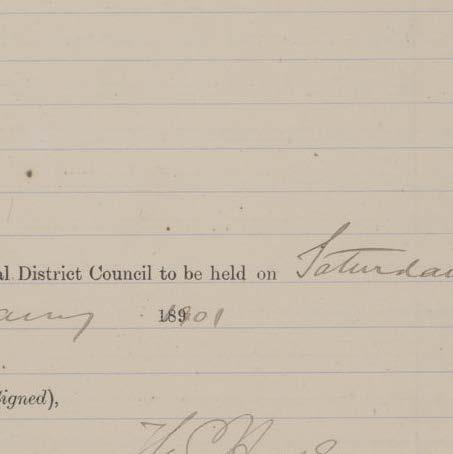 al District Council to be held on Saturda
uary 1901
igned),